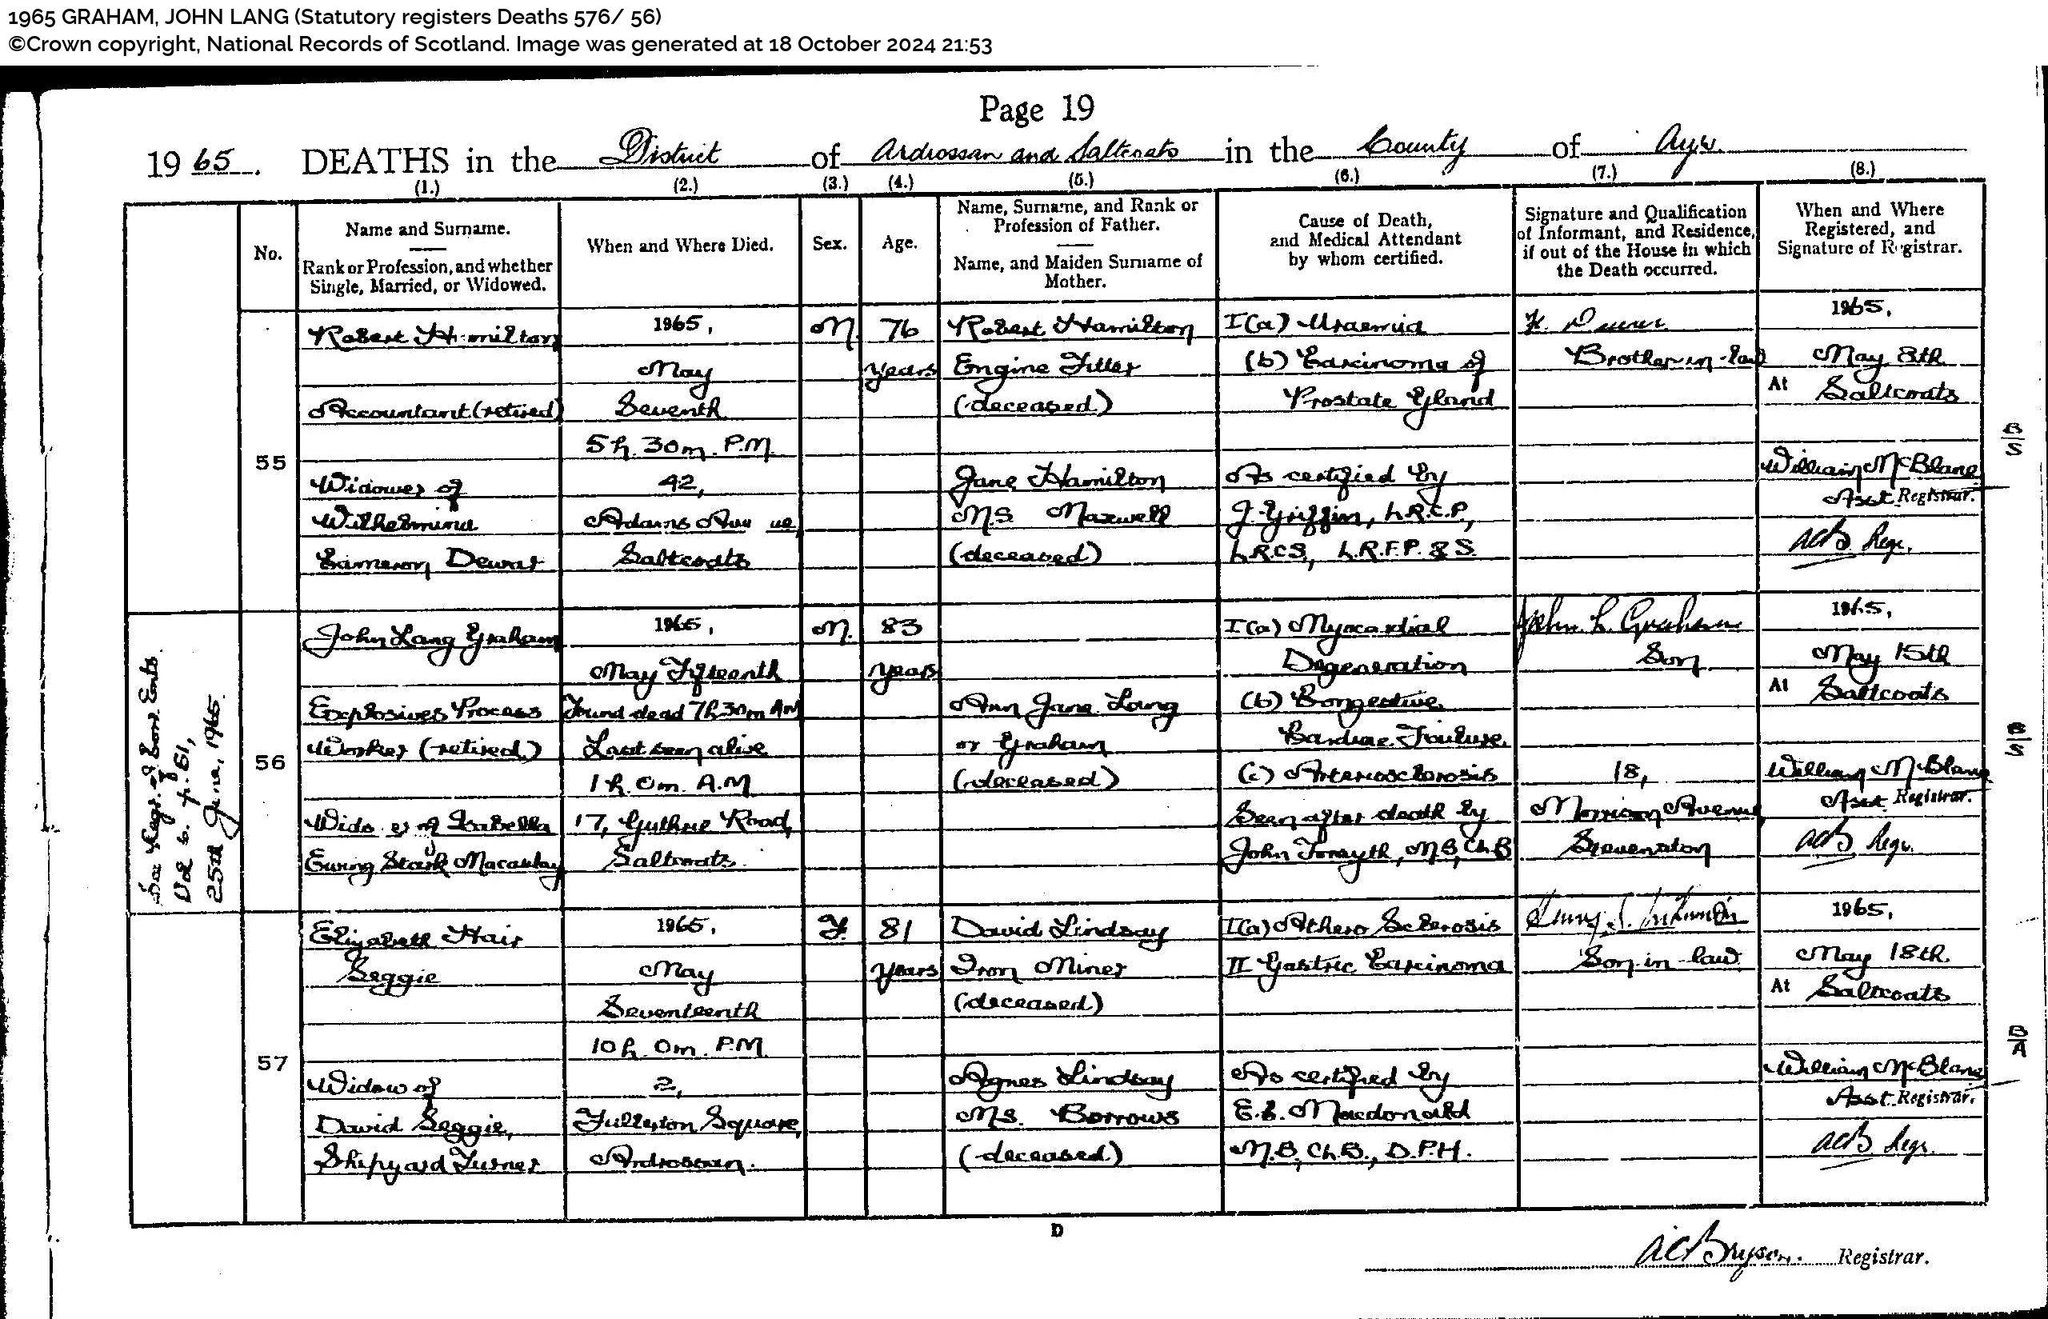 1965 GRAHAM, JOHN LANG (Statutory registers Deaths 576/ 56)
©Crown copyright, National Records of Scotland. Image was generated at 18 October 2024 21:53
Page 19
1965. DEATHS in the District of Ardrossan and Saltcoats in the County of Ayr.
(1.) (2.) (3.) (4.) (5.) (6.) (7.) (8.)
No.
Name and Surname.
Rank or Profession, and whether
Single, Married, or Widowed.
When and Where Died.
Sex.
Age.
Name, Surname, and Rank or
Profession of Father.
Name, and Maiden Surname of
Mother.
Cause of Death,
and Medical Attendant
by whom certified.
Signature and Qualification
of Informant, and Residence,
if out of the House in which
the Death occurred.
When and Where
Registered, and
Signature of Registrar.
55
Robert Hamilton
Accountant (retired)
Widower of
Wilhelmina
Cameron Dewar
1965,
May
Seventh
5h. 30m. P.M.
42,
Adams Avenue,
Saltcoats
M.
76
years
Robert Hamilton
Engine Fitter
(deceased)
Jane Hamilton
M.S. Maxwell
(deceased)
I(a) Uraemia
(b) Carcinoma of
Prostate Gland
As certified by
J. Griffin, L.R.C.P.,
L.R.C.S., L.R.F.P. & S.
Brother-in-law
1965,
May 8th
At Saltcoats
William McBlane
Asst. Registrar.
ACB Regr.
B/S
See Regr. of Corr. Ents.
Vol 6. p. 61,
25th June, 1965.
56
John Lang Graham
Explosives Process
Worker (retired)
Widower of Isabella
Ewing Stark Macaulay
1965,
May Fifteenth
Found dead 7h 30m AM
Last seen alive
1h. 0m. A.M
17, Guthrie Road,
Saltcoats.
M.
83
years
Ann Jane Lang
or Graham
(deceased)
I(a) Myocardial
Degeneration
(b) Congestive
Cardiac Failure.
(c) Arteriosclerosis
Seen after death by
John Forsyth, M.B, Ch.B
John L. Graham
Son
18,
Morrison Avenue
Stevenston
1965,
May 15th
At Saltcoats
William McBlane
Asst. Registrar.
ACB Regr.
57
Elizabeth Hair
Seggie
Widow of
David Seggie,
Shipyard Turner
1965,
May
Seventeenth
10h. 0m. P.M
2,
Fullerton Square,
Ardrossan.
F.
81
years
David Lindsay
Iron Miner
(deceased)
Agnes Lindsay
M.S. Borrows
(deceased)
I(a) Athero Sclerosis
II Gastric Carcinoma
As certified by
Macdonald
M.B., Ch.B., D.P.H.
Son-in-law.
1965,
May 18th.
At Saltcoats
William McBlane
Asst. Registrar.
ACB Regr.
B/A
D
ACBryson. Registrar.